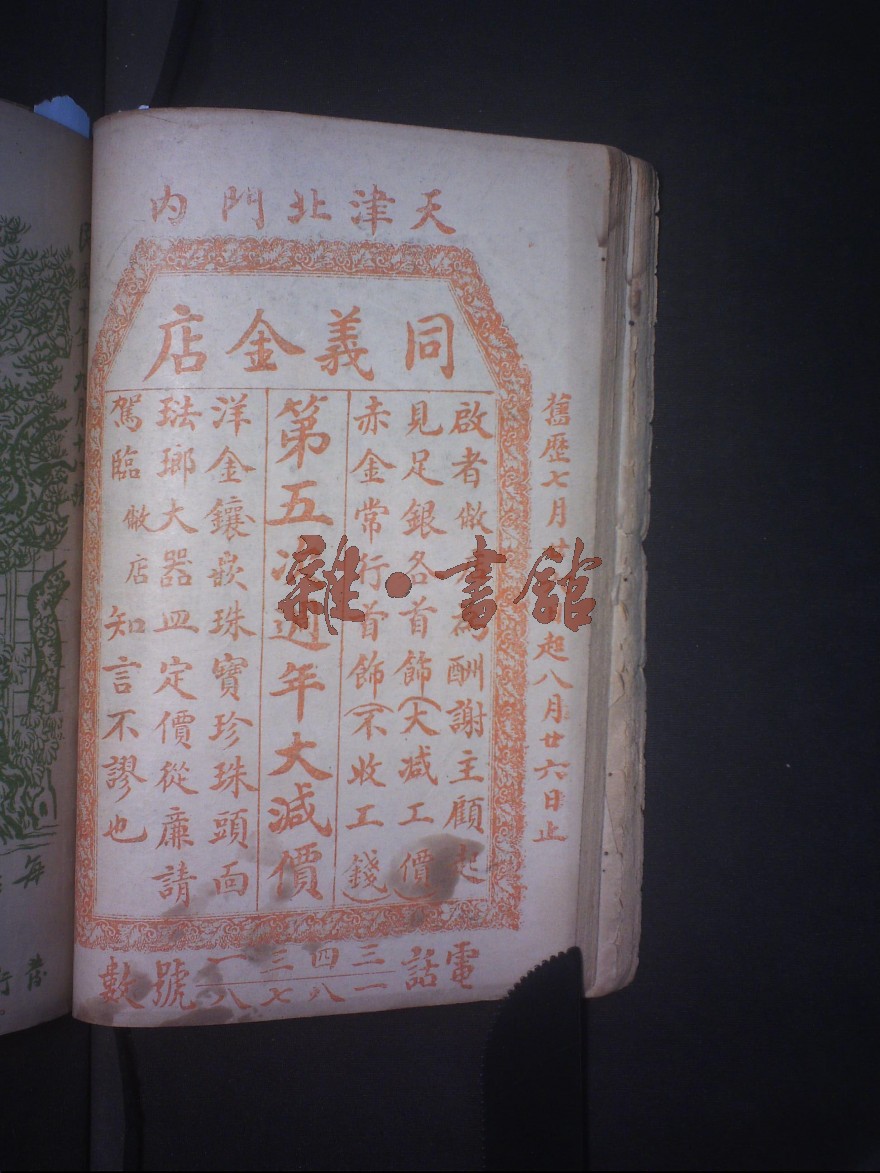 天津北門內
同義金店
舊歷七月廿 起八月廿六日止
啟者做 為酬謝主顧起
見足銀各首飾(大減工價)
赤金常行首飾(不收工錢)
第五次週年大減價
洋金鑲嵌珠寶珍珠頭面
琺瑯大器皿定價從廉請
駕臨敝店知言不謬也
電話 三四三一 一八七八 號數
雜·書館
年
行